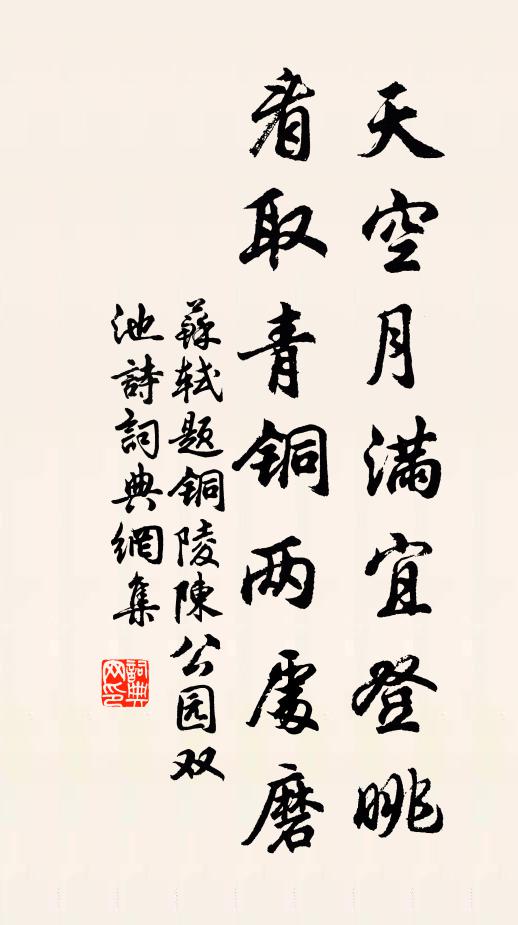 天空月满宜登眺
看取青铜两處磨
蘇轼题铜陵陳公园双
池詩詞典網集
詞典
网印